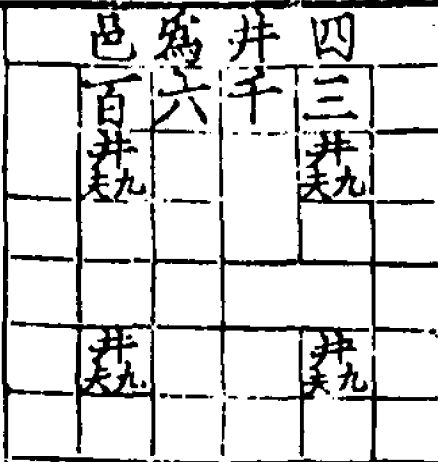 四井爲邑
三千六百
井九夫
井九夫
井九夫
井九夫